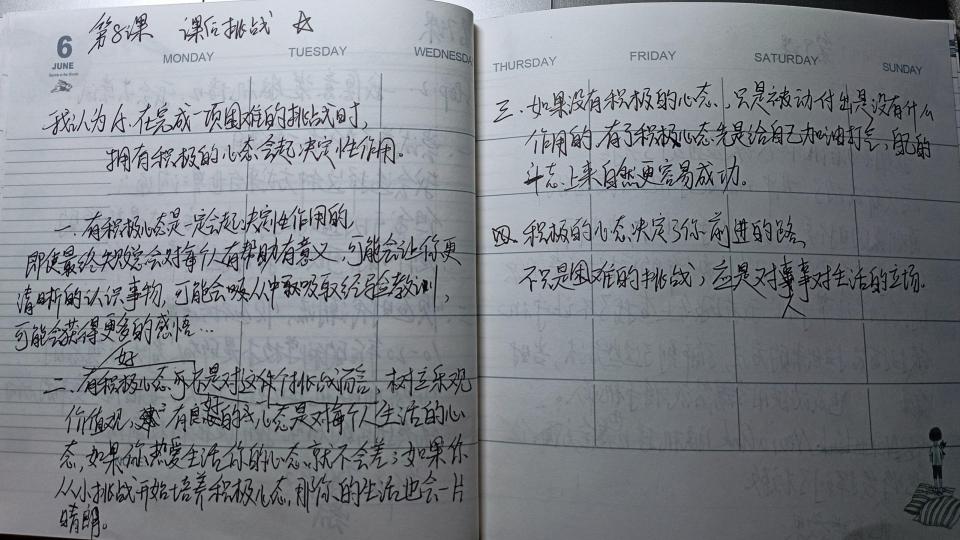 6
JUNE
第8课 课后挑战 ☆
MONDAY TUESDAY WEDNESDAY
我认为人在完成一项困难的挑战时,
拥有积极的心态会起决定性作用。
一.有积极心态是一定会起决定性作用的,
即使最终失败总会对每个人有帮助有意义,可能会让你更
清晰的认识事物,可能会吸从中取吸取经验教训,
可能会获得更多的感悟…
好
二.有积极心态 不是对这件个挑战而言,树立乐观
价值观,有良好的心态是对每个人生活的心
态,如果你热爱生活你的心态就不会差;如果你
从小挑战开始培养积极心态,那你的生活也会一片
晴朗。
THURSDAY FRIDAY SATURDAY SUNDAY
三.如果没有积极的心态,只是被动付出是没有什么
作用的,有了积极心态先是给自己加油打气,自己的
斗志上来自然更容易成功。
四.积极的心态决定了你前进的路,
不只是困难的挑战,应是对事对生活的立场。
人